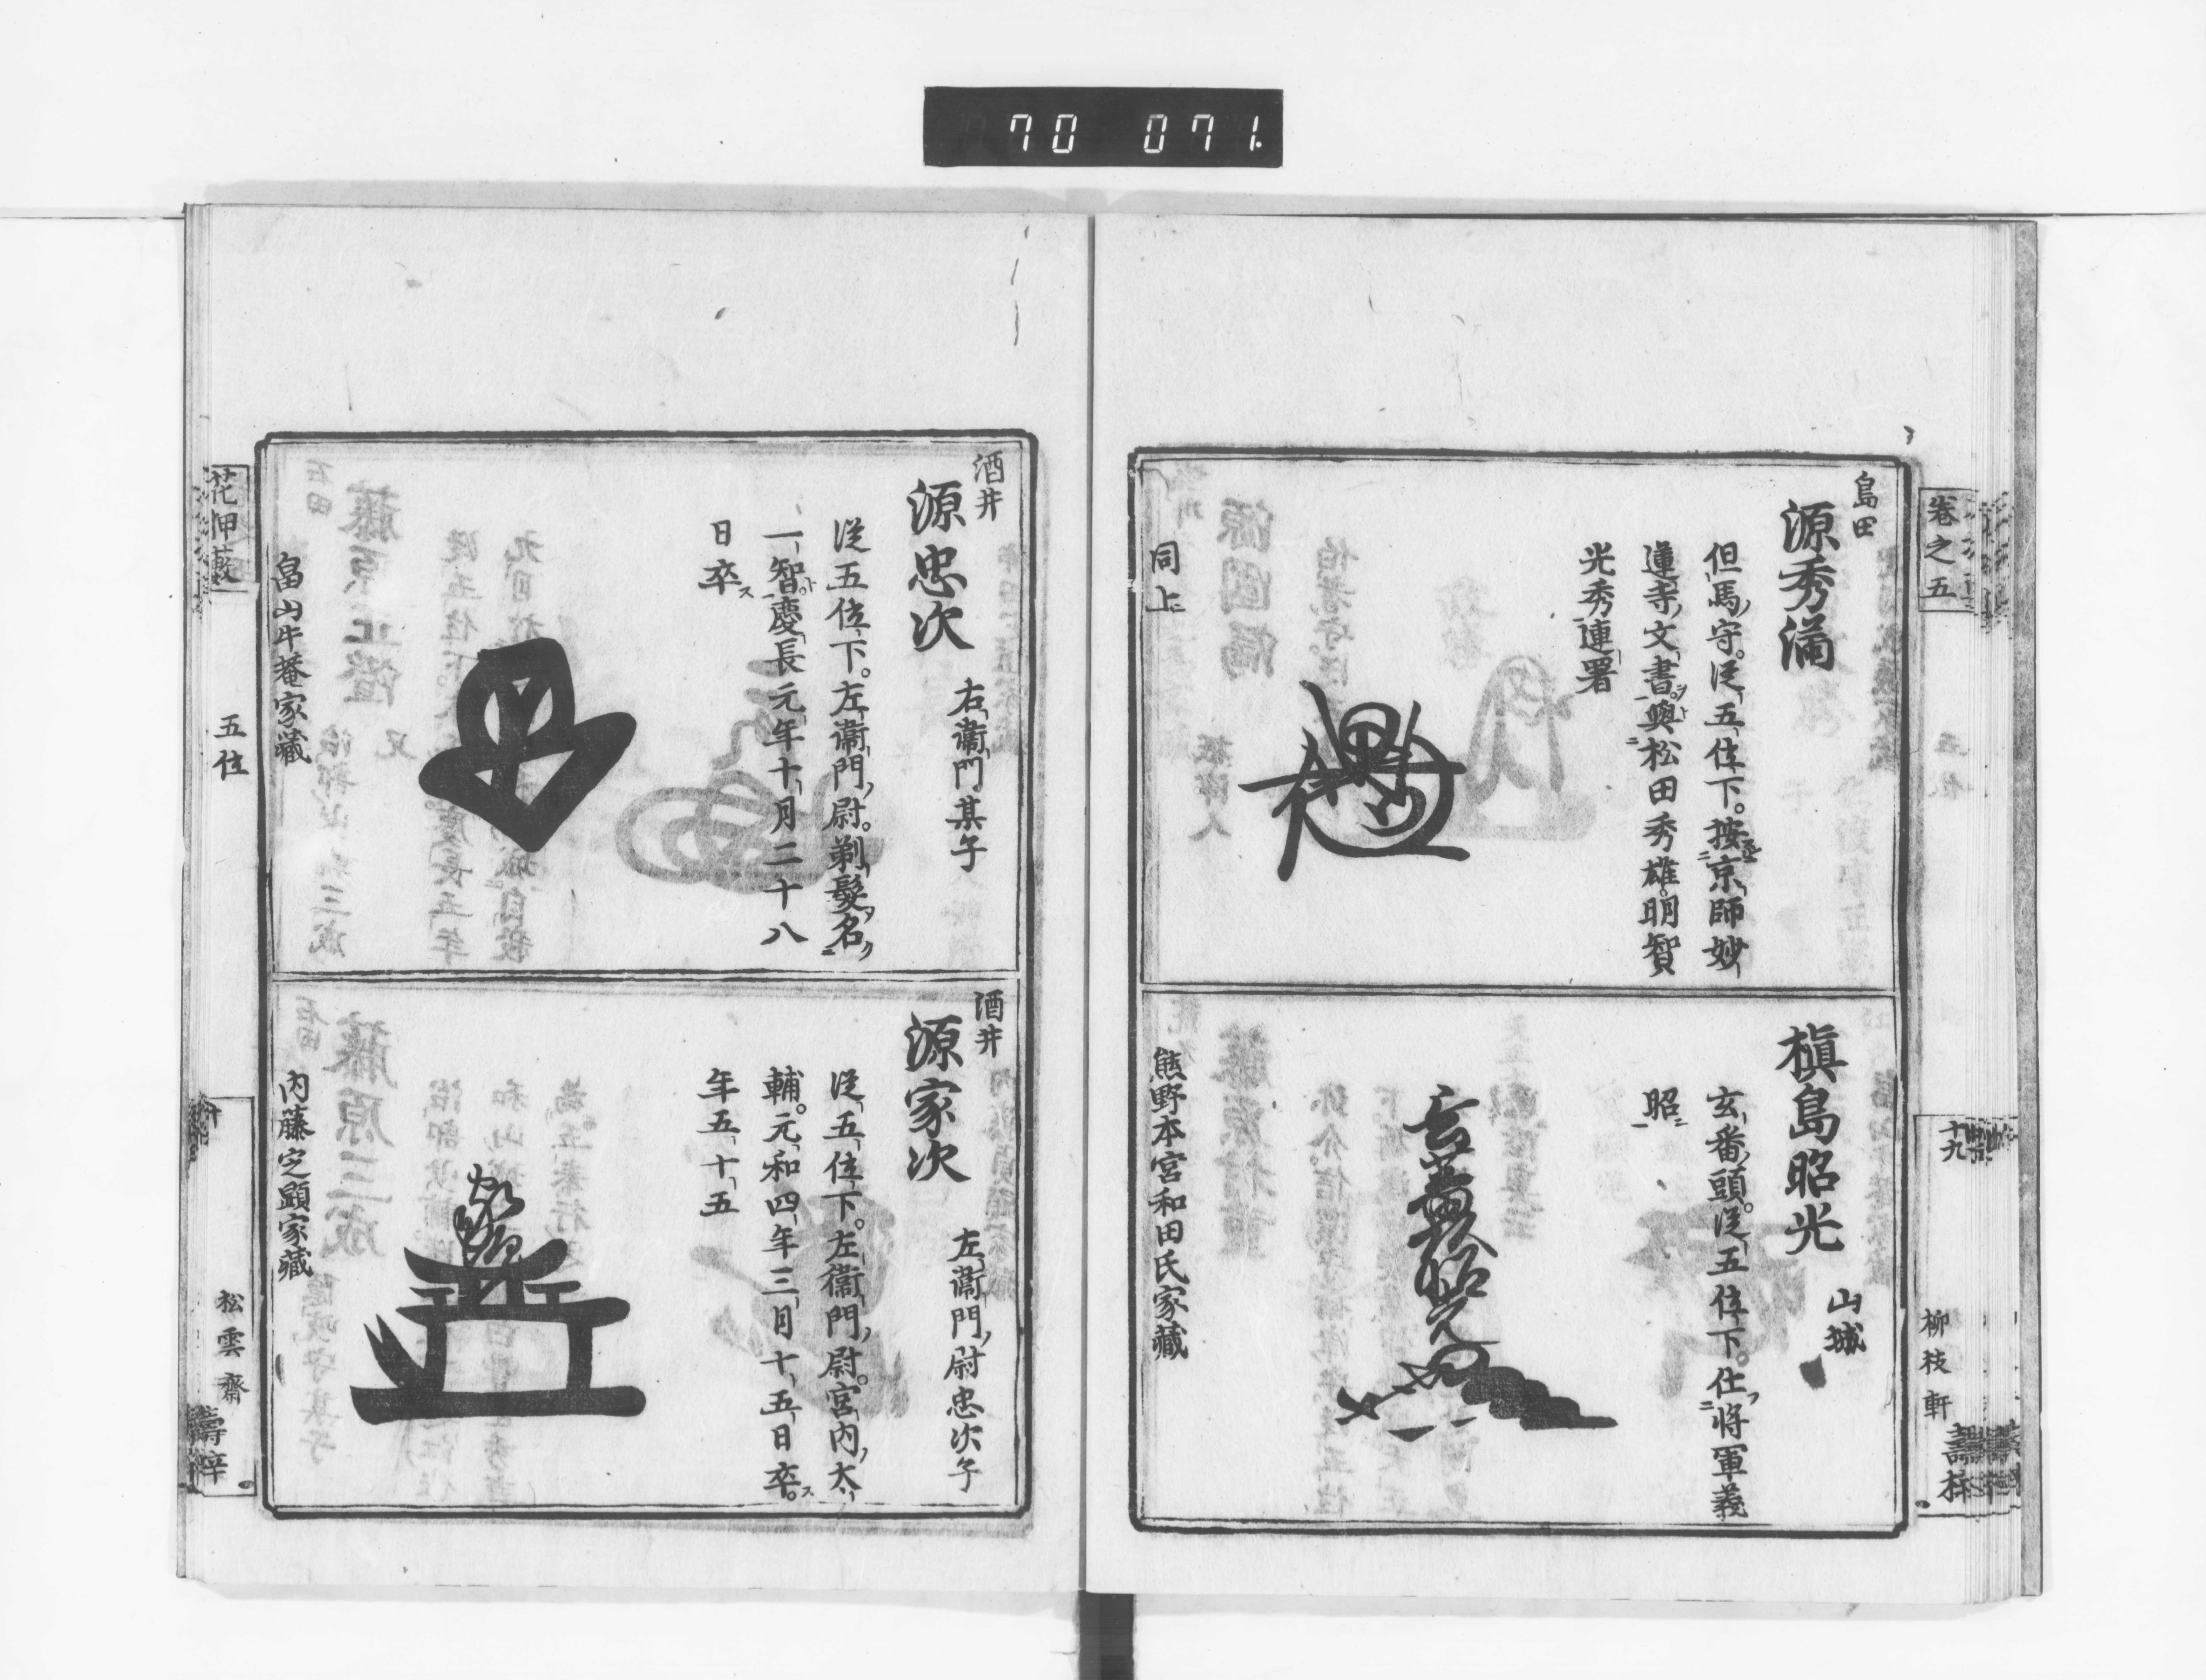 70 071.
卷之五
十九
柳枝軒
島田
源秀滿
但馬守。從五位下。按京師妙
蓮寺文書。與松田秀雄。明智
光秀連署
同上
槇島昭光
山城
玄番頭。從五位下。仕將軍義
昭
熊野本宮和田氏家藏
酒井
源忠次
右衞門某子
從五位下。左衞門尉。剃髮名
一智。慶長元年十月二十八
日卒
畠山牛菴家藏
酒井
源家次
左衞門尉忠次子
從五位下。左衞門尉。宮内大
輔。元和四年三月十五日卒。
年五十五
内藤定顯家藏
花押藪
五位
松雲齋